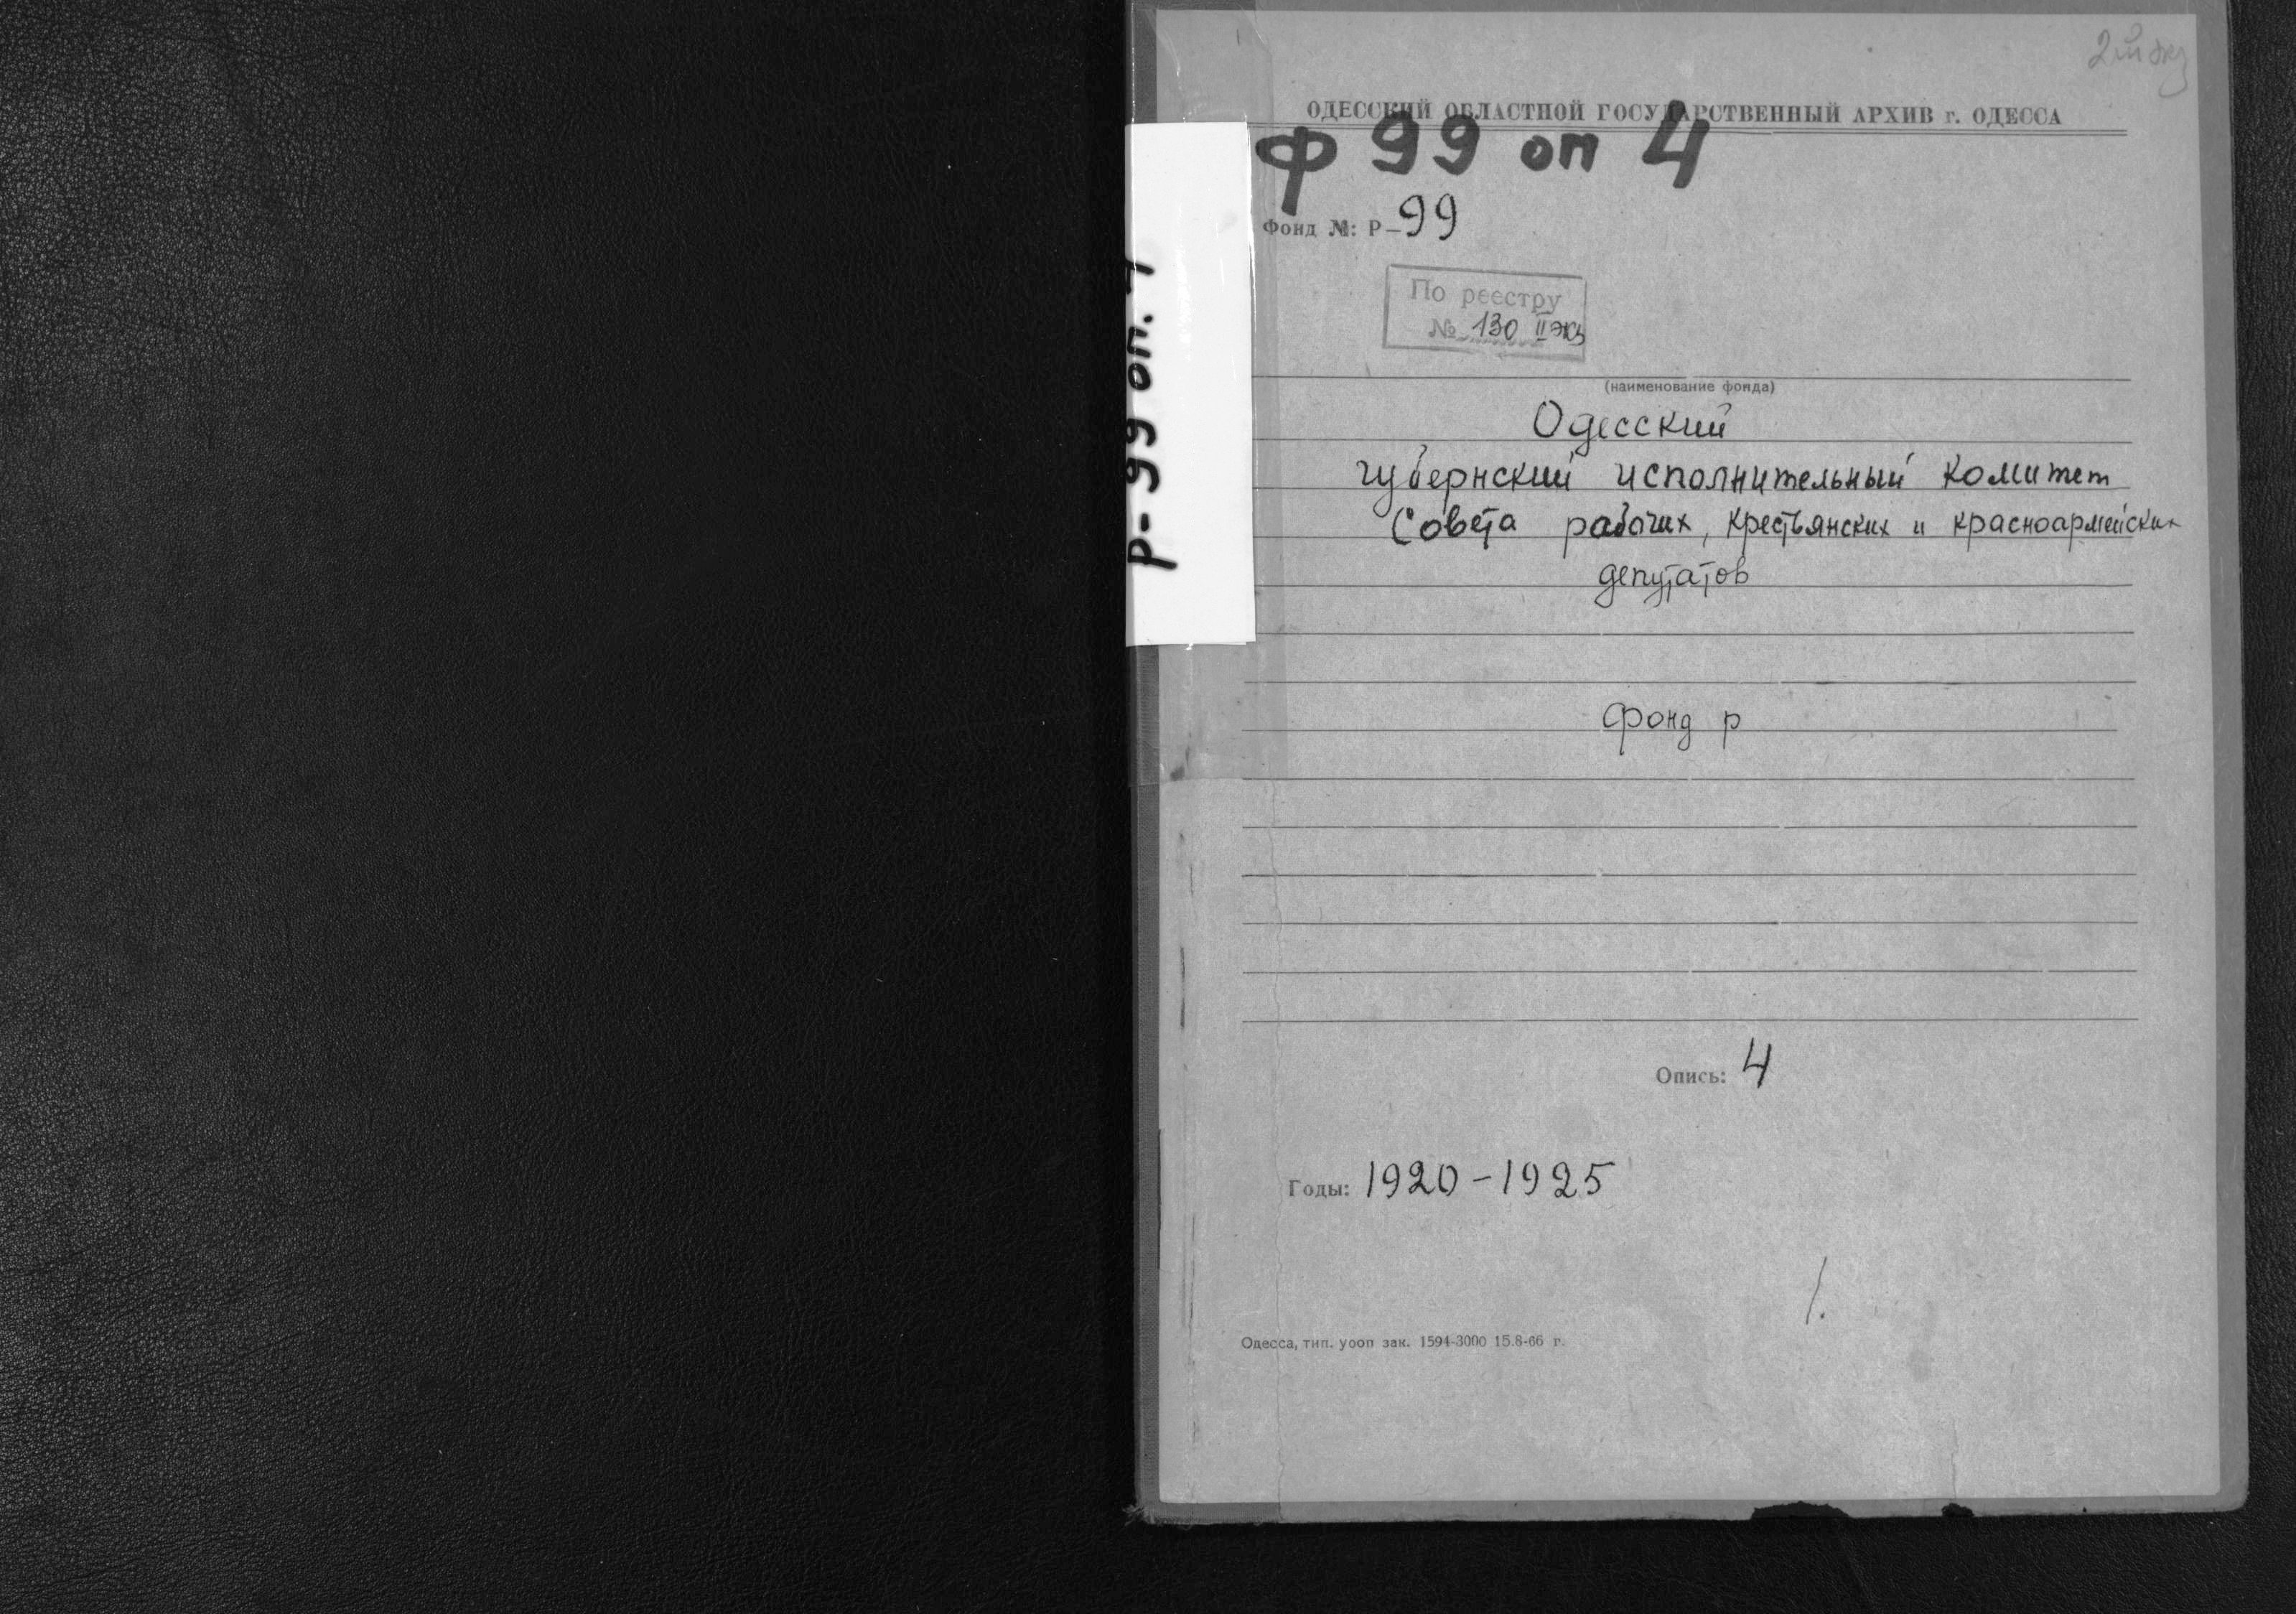 2й экз
ОДЕССКИЙ ОБЛАСТНОЙ ГОСУДАРСТВЕННЫЙ АРХИВ г. ОДЕССА
Ф 99 оп 4
Фонд №: Р-99
По реестру
№ 130 II экз
(наименование фонда)
Одесский
губернский исполнительный комитет
Совета рабочих, крестьянских и красноармейских
депутатов
фонд р
Опись: 4
Годы: 1920-1925
1.
Одесса, тип. уооп зак. 1594-3000 15.8-66 г.
Р-99 оп. 4